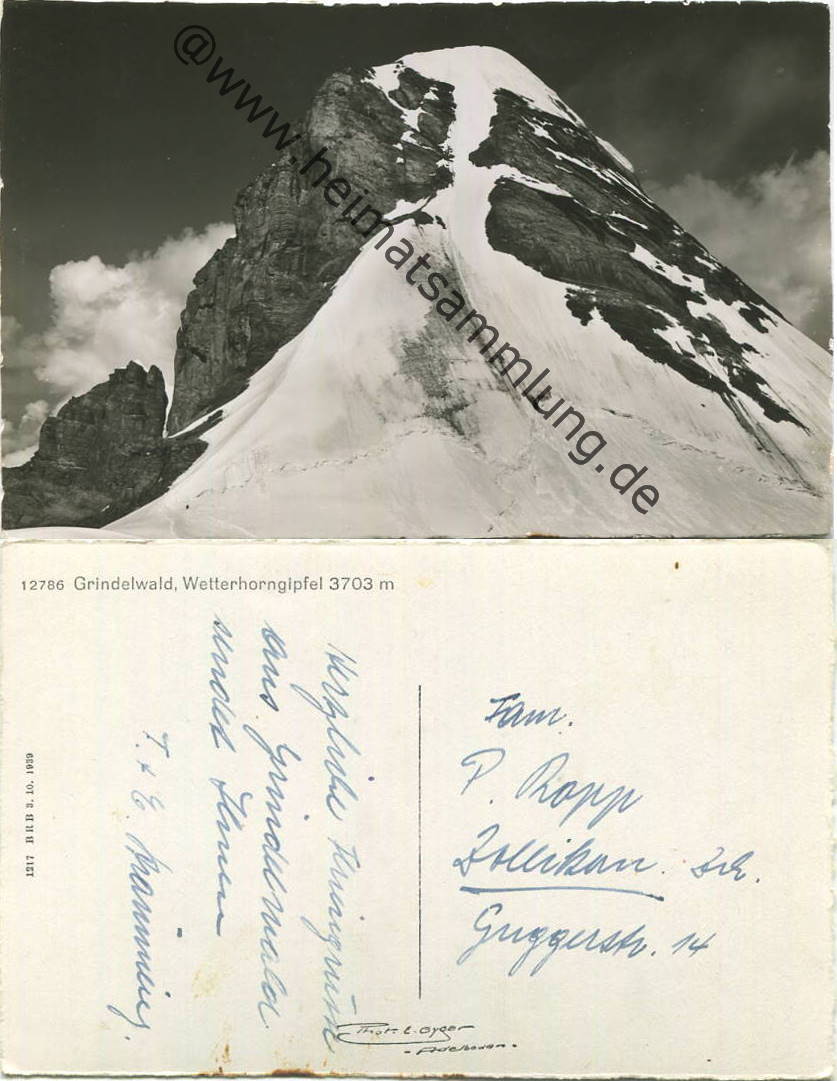 @www.heimatsammlung.de
12786 Grindelwald, Wetterhorngipfel 3703 m
Herzliche Feriengrüsse
aus Grindelwald
sendet Ihnen
T. + E.
1217 BRB 3. 10. 1939
Fam.
P. Ropp
Zollikon. Zch.
Guggerstr. 14
Phot. E. Gyger
- Adelboden -